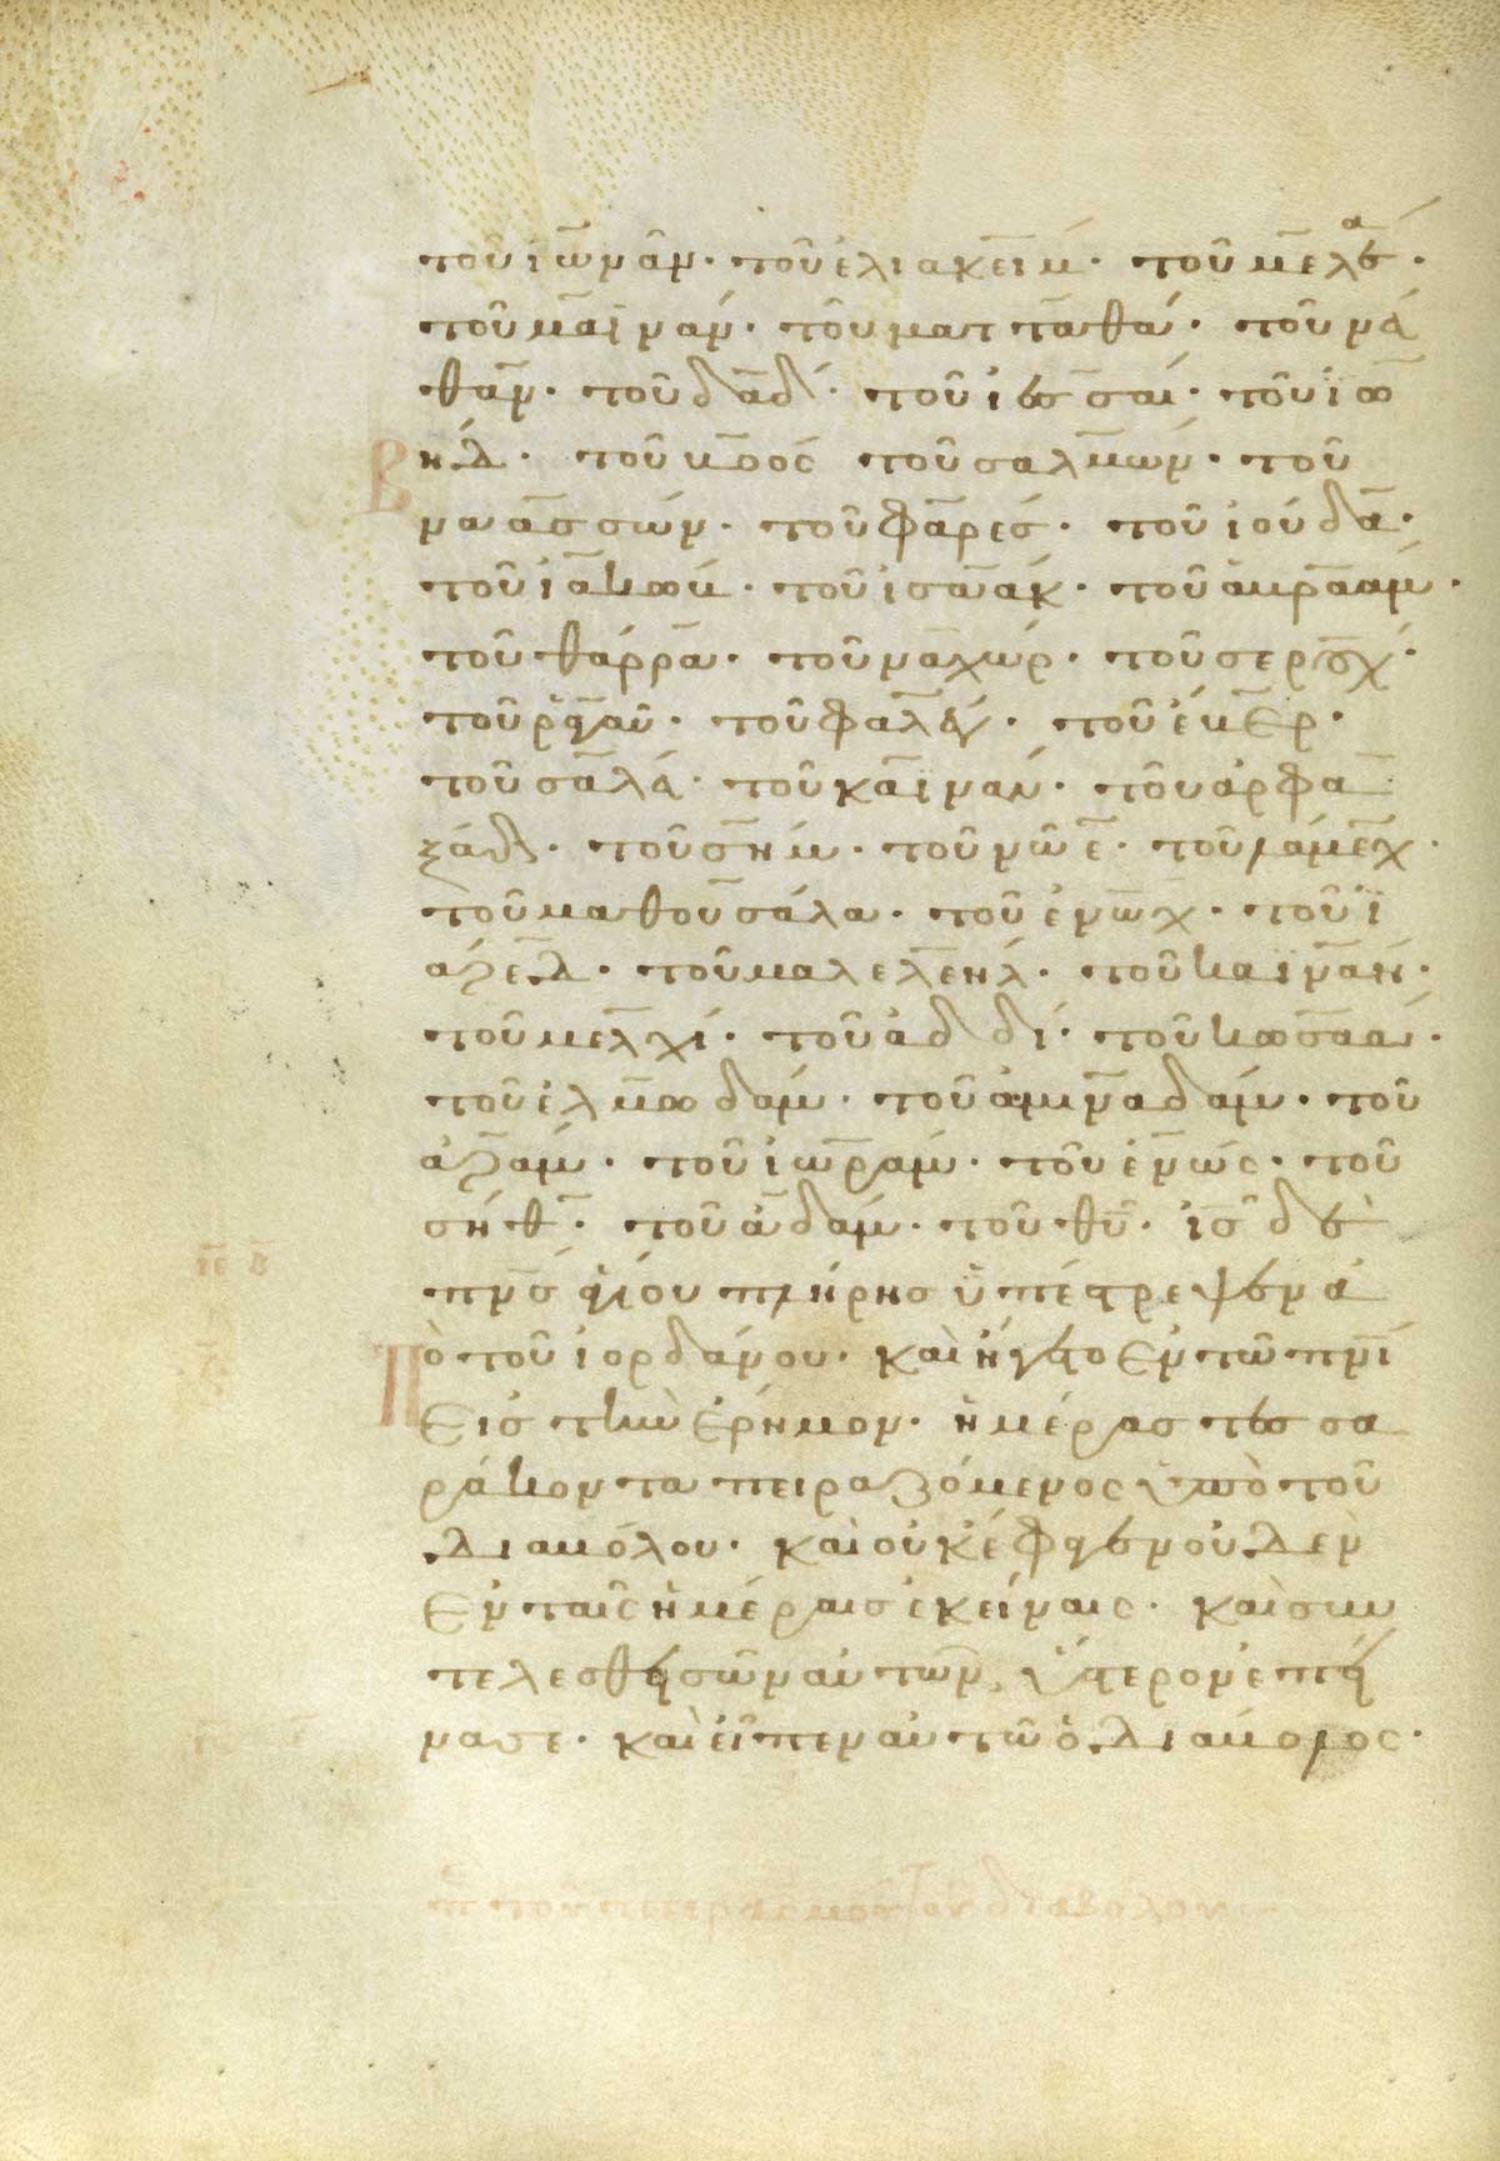 τοῦ ἰωνᾶν· τοῦ ἐλιακείμ· τοῦ μελεᾶ·
τοῦ μαϊνάν· τοῦ ματταθά· τοῦ νά
θαν· τοῦ δαδ· τοῦ ἰεσσαί· τοῦ ἰω
ήδ· τοῦ βοός τοῦ σαλμών· τοῦ
ναασσών· τοῦ φαρές· τοῦ ἰούδα·
τοῦ ἰακώβ· τοῦ ἰσαάκ· τοῦ ἀβραάμ·
τοῦ θάρρα· τοῦ ναχώρ· τοῦ σερούχ·
τοῦ ῥαγαῦ· τοῦ φαλέγ· τοῦ ἔβερ·
τοῦ σαλά· τοῦ καϊνάν· τοῦ ἀρφα
ξάδ· τοῦ σήμ· τοῦ νῶε· τοῦ λάμεχ·
τοῦ μαθουσάλα· τοῦ ἐνώχ· τοῦ ἰ
αρεδ· τοῦ μαλελεήλ· τοῦ καϊνάν·
τοῦ μελχί· τοῦ ἀδδί· τοῦ κωσάμ·
τοῦ ἐλμωδάμ· τοῦ ἀμιναδάμ· τοῦ
ἀράμ· τοῦ ἰωράμ· τοῦ ἐνώς· τοῦ
σήθ· τοῦ ἀδάμ· τοῦ θυ· ις δὲ
πνς ἁγίου πλήρης ὑπέστρεψεν ἀ
πὸ τοῦ ἰορδάνου· καὶ ἤγετο ἐν τῶ πνι
εἰς τὴν ἔρημον· ἡμέρας τεσσα
ράκοντα πειραζόμενος ὑπὸ τοῦ
διαβόλου· καὶ οὐκ ἔφαγεν οὐδὲν
ἐν ταῖς ἡμέραις ἐκείναις· καὶ συν
τελεσθεισῶν αὐτῶν, ὕστερον ἐπεί
νασε· καὶ εἶπεν αὐτῶ ὁ διάβολος·